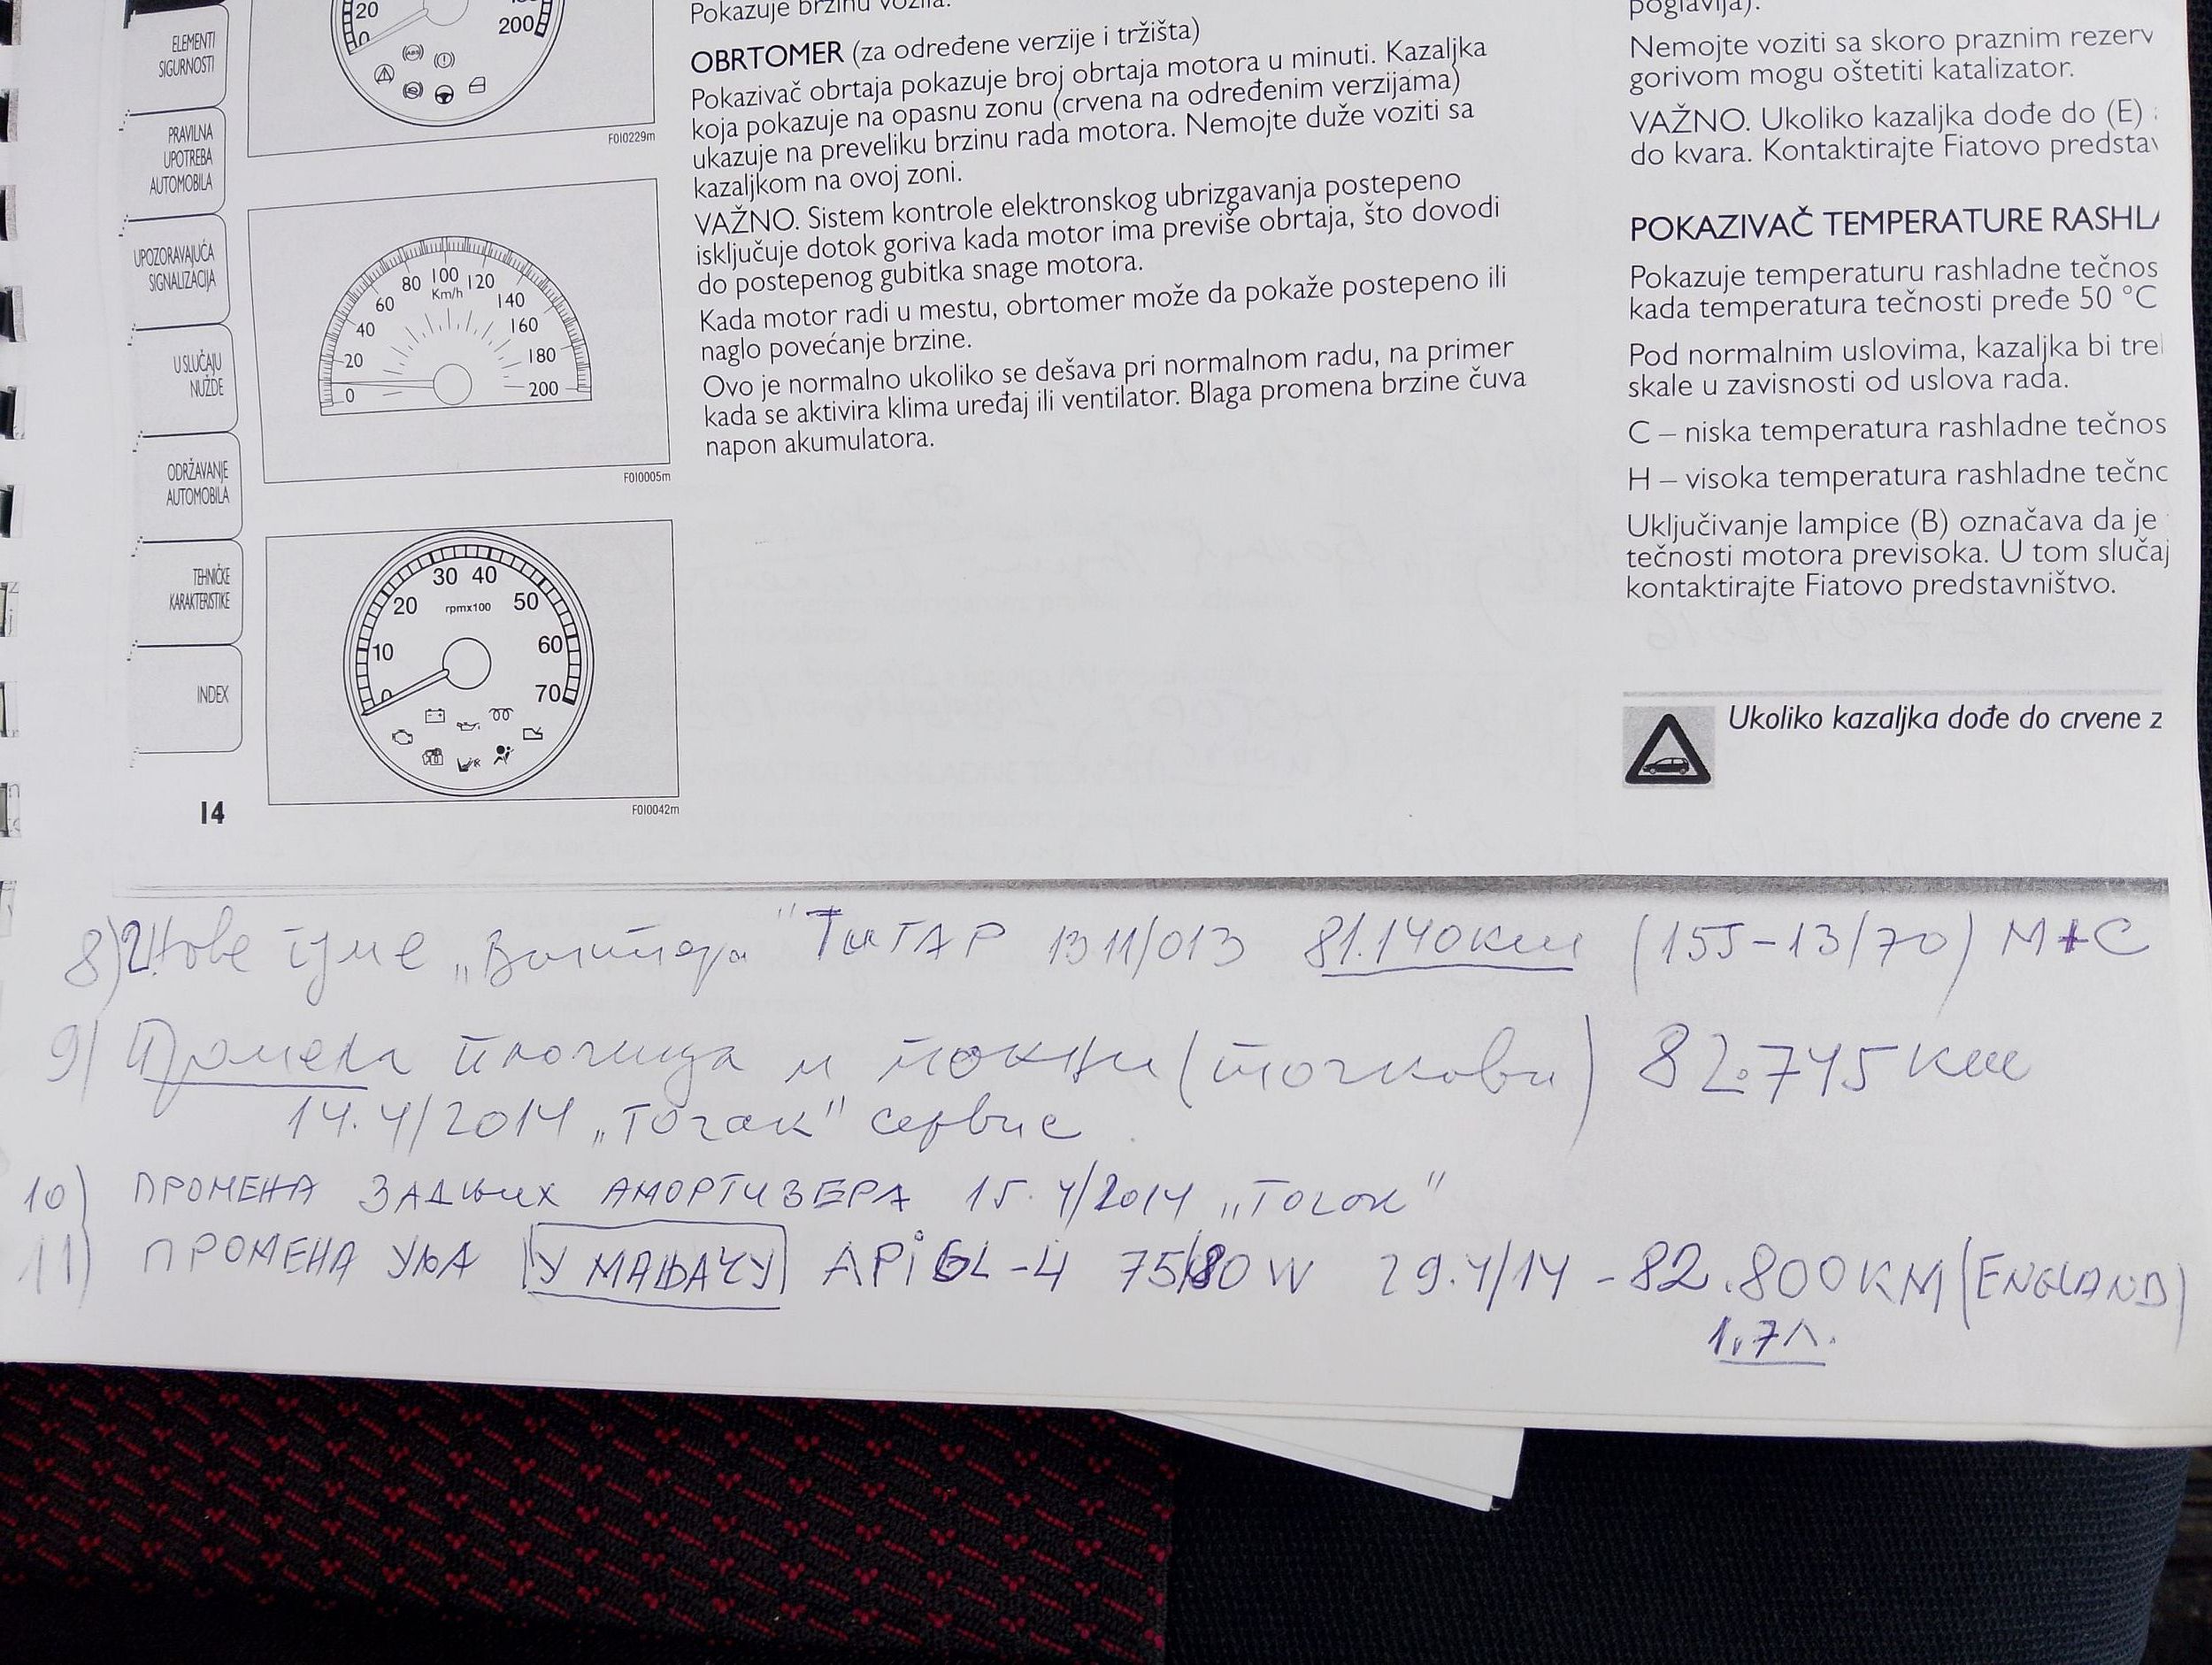 ELEMENTI
SIGURNOSTI
PRAVILNA
UPOTREBA
AUTOMOBILA
UPOZORAVAJUĆA
SIGNALIZACIJA
U SLUČAJU
NUŽDE
ODRŽAVANJE
AUTOMOBILA
TEHNIČKE
KARAKTERISTIKE
INDEX
14
20
0
200
F0I0229m
0
20
40
60
80
100
120
140
160
180
200
Km/h
F0I0005m
0
10
20
30
40
50
60
70
rpmx100
F0I0042m
Pokazuje brzinu vozila.
OBRTOMER (za određene verzije i tržišta)
Pokazivač obrtaja pokazuje broj obrtaja motora u minuti. Kazaljka
koja pokazuje na opasnu zonu (crvena na određenim verzijama)
ukazuje na preveliku brzinu rada motora. Nemojte duže voziti sa
kazaljkom na ovoj zoni.
VAŽNO. Sistem kontrole elektronskog ubrizgavanja postepeno
isključuje dotok goriva kada motor ima previše obrtaja, što dovodi
do postepenog gubitka snage motora.
Kada motor radi u mestu, obrtomer može da pokaže postepeno ili
naglo povećanje brzine.
Ovo je normalno ukoliko se dešava pri normalnom radu, na primer
kada se aktivira klima uređaj ili ventilator. Blaga promena brzine čuva
napon akumulatora.
poglavlja).
Nemojte voziti sa skoro praznim rezerv
gorivom mogu oštetiti katalizator.
VAŽNO. Ukoliko kazaljka dođe do (E)
do kvara. Kontaktirajte Fiatovo predstav
POKAZIVAČ TEMPERATURE RASHLA
Pokazuje temperaturu rashladne tečnos
kada temperatura tečnosti pređe 50 °C
Pod normalnim uslovima, kazaljka bi tre
skale u zavisnosti od uslova rada.
C – niska temperatura rashladne tečnos
H – visoka temperatura rashladne tečno
Uključivanje lampice (B) označava da je
tečnosti motora previsoka. U tom slučaj
kontaktirajte Fiatovo predstavništvo.
Ukoliko kazaljka dođe do crvene z
8) 2 Нове гуме ТИГАР 13 11/013 81.140км (155-13/70) M+C
9) Промена плочица и (точкови) 82.745 км
14.4/2014 „Точак" сервис
10) ПРОМЕНА ЗАДЊИХ АМОРТИЗЕРА 15.4/2014 „Точак"
11) ПРОМЕНА УЉА У МАЊАЧУ APi GL-4 75/80 W 29.4/14 - 82.800 KM (ENGLAND)
1,7л.